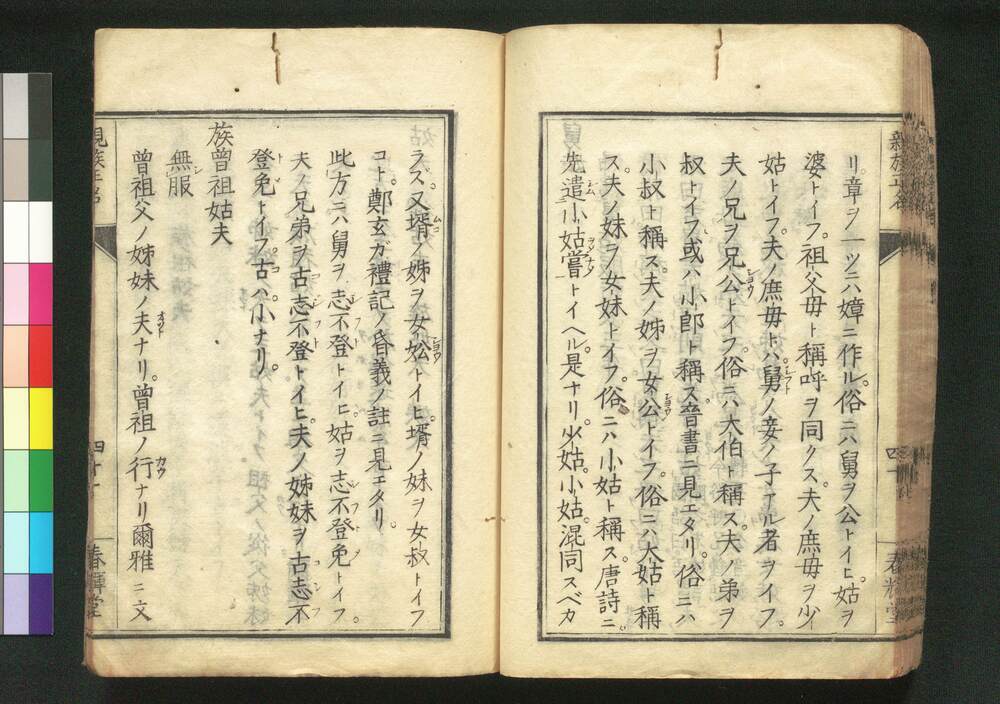 リ。章ヲ一ツニハ嫜ニ作ル。俗ニハ舅ヲ公トイヒ。姑ヲ
婆トイフ。祖父母ト稱呼ヲ同クス。夫ノ庶母ヲ少
姑トイフ。夫ノ庶母トハ舅ノ妾ノ子アル者ヲイフ。
夫ノ兄ヲ兄公トイフ。俗ニハ大伯ト稱ス。夫ノ弟ヲ
叔トイフ。或ハ小郎ト稱ス。晉書ニ見エタリ。俗ニハ
小叔ト稱ス。夫ノ姊ヲ女公トイフ。俗ニハ大姑ト稱
ス。夫ノ妹ヲ女妹トイフ。俗ニハ小姑ト稱ス。唐詩ニ。
先遣小姑嘗トイヘル是ナリ。少姑。小姑。混同スベカ
四十
春輝堂
ラズ。又壻ノ姊ヲ女妐トイヒ。壻ノ妹ヲ女叔トイフ
コト。鄭玄ガ禮記ノ昏義ノ註ニ見エタリ。
此方ニハ舅ヲ志不登トイヒ。姑ヲ志不登免トイフ。
夫ノ兄弟ヲ古志不登トイヒ。夫ノ姊妹ヲ古志不
登免トイフ。古ハ小ナリ。
族曾祖姑夫
無服
曾祖父ノ姊妹ノ夫ナリ。曾祖ノ行ナリ爾雅ニ文
四十一
春輝堂